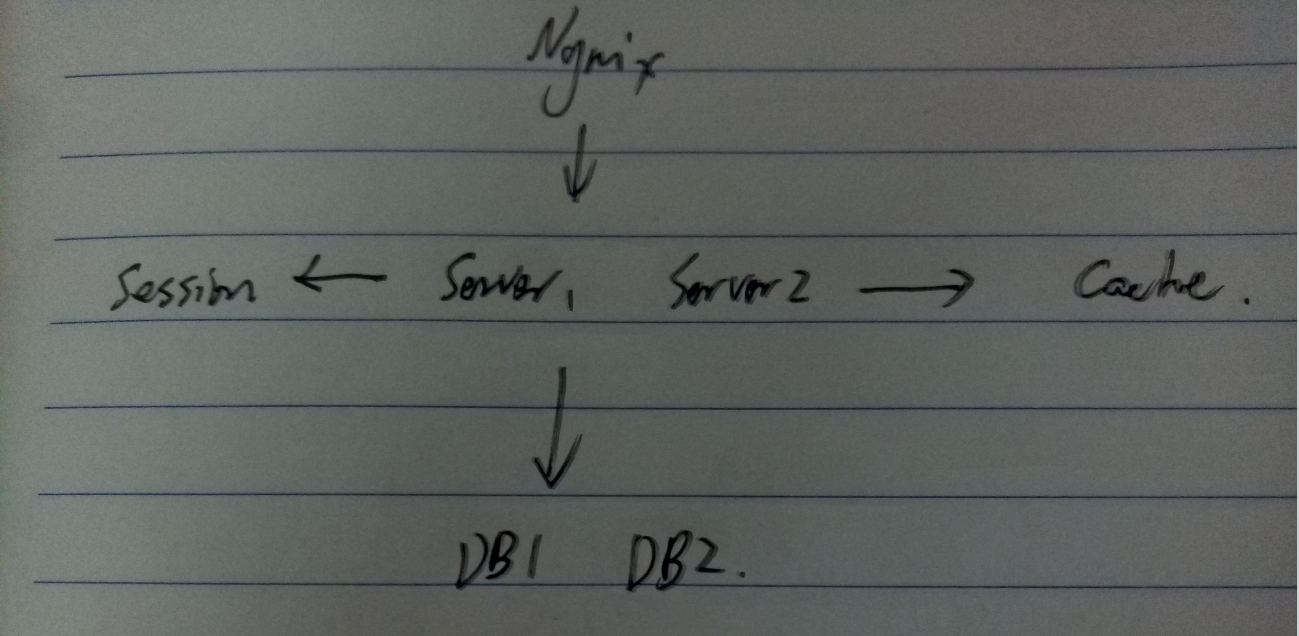 Nginx
Session ← Server1 Server2 → Cache.
DB1 DB2.